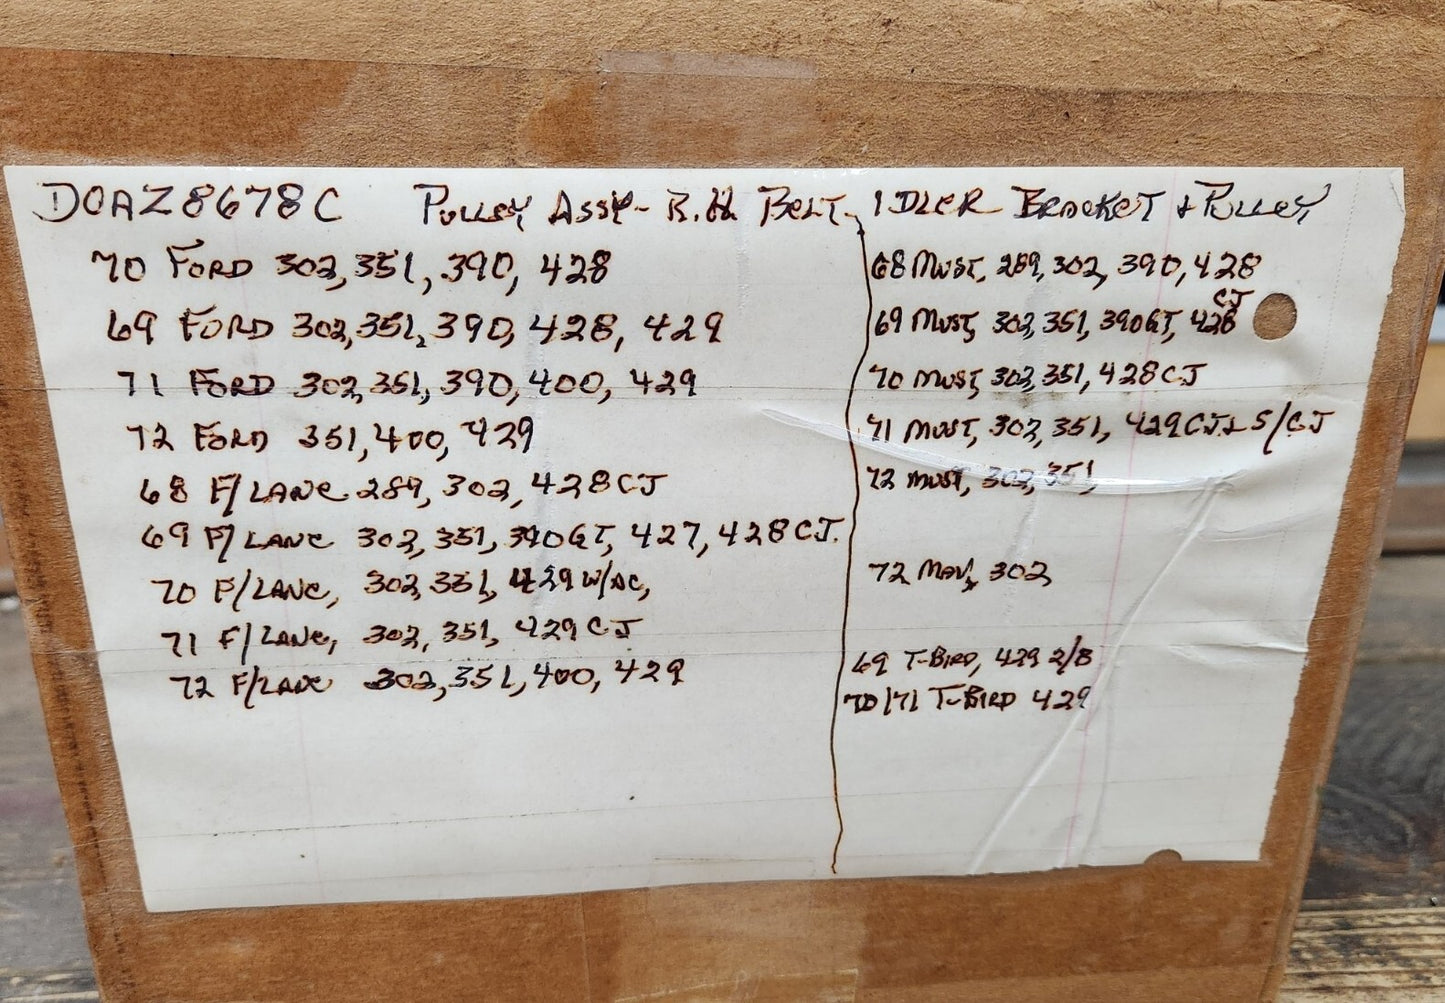 DOAZ8678C PULLEY ASSY- R.H. BELT IDLER BRACKET & PULLEY
70 FORD 302, 351, 390, 428
69 FORD 302, 351, 390, 428, 429
71 FORD 302, 351, 390, 400, 429
72 FORD 351, 400, 429
68 F/LANE 289, 302, 428CJ
69 F/LANE 302, 351, 390GT, 427, 428CJ.
70 F/LANE, 302, 351, 429 W/AC,
71 F/LANE, 302, 351, 429CJ
72 F/LANE 302, 351, 400, 429
68 MUST, 289, 302, 390, 428
69 MUST, 302, 351, 390GT, 428 CJ
70 MUST, 302, 351, 428CJ
71 MUST, 302, 351, 429CJ & S/CJ
72 MUST, 302, 351,
72 MAV, 302,
69 T-BIRD, 429 2/8
70/71 T-BIRD 429